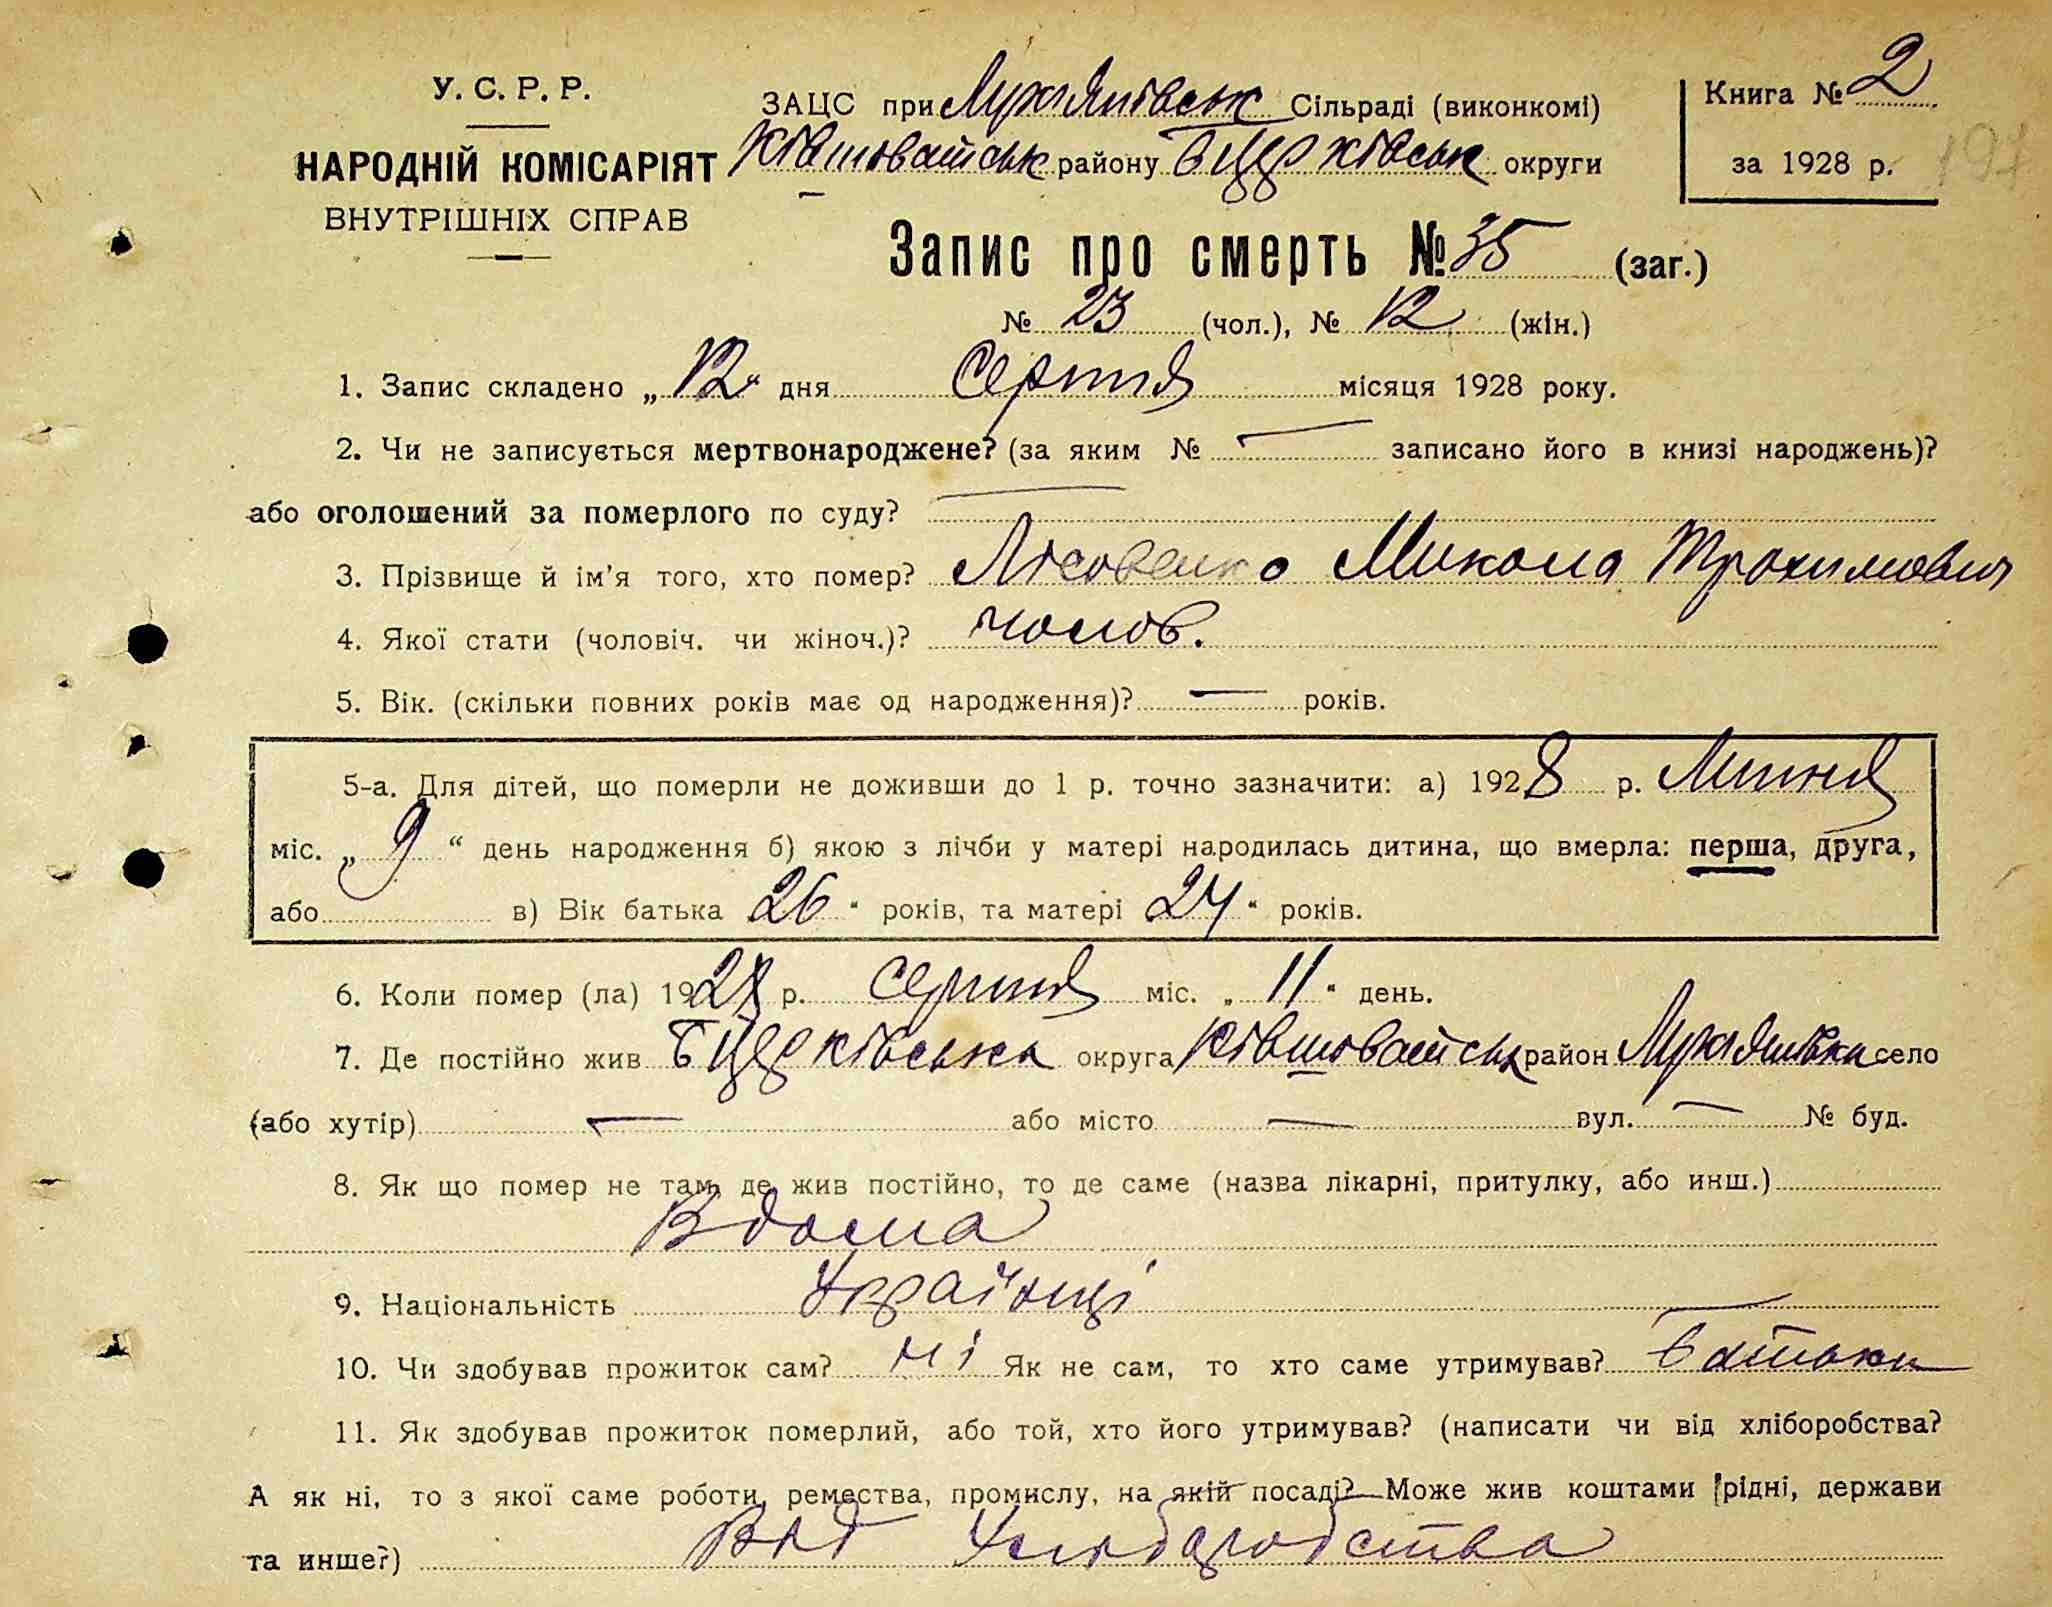 У. С. Р. Р.
НАРОДНІЙ КОМІСАРІЯТ
ВНУТРІШНІХ СПРАВ
ЗАЦС при Лук'янівськ Сільраді (виконкомі)
Ківшоватськ району БЦерківськ округи
Книга № 2
за 1928 р.
197
Запис про смерть № 35 (заг.)
№ 23 (чол.), № 12 (жін.)
1. Запис складено „12“ дня Серпня місяця 1928 року.
2. Чи не записується мертвонароджене? (за яким № — записано його в книзі народжень)?
або оголошений за померлого по суду? —
3. Прізвище й ім'я того, хто помер? Лісовенко Микола Трохимович
4. Якої стати (чоловіч. чи жіноч.)? чолов.
5. Вік. (скільки повних років має од народження)? — років.
5-а. Для дітей, що померли не доживши до 1 р. точно зазначити: а) 1928 р. Липня
міс. „9“ день народження б) якою з лічби у матері народилась дитина, що вмерла: перша, друга,
або в) Вік батька 26 “ років, та матері 24 “ років.
6. Коли помер (ла) 1928 р. серпня міс. „11“ день.
7. Де постійно жив БЦерківська округа Ківшоватськ район Лук'янівка село
(або хутір) — або місто — вул. — № буд.
8. Як що помер не там, де жив постійно, то де саме (назва лікарні, притулку, або инш.)
Вдома
9. Національність Українці
10. Чи здобував прожиток сам? ні Як не сам, то хто саме утримував? Батьки
11. Як здобував прожиток померлий, або той, хто його утримував? (написати чи від хліборобства?
А як ні, то з якої саме роботи, ремества, промислу, на якій посаді? Може жив коштами рідні, держави
та инше?) Від Хліборобства